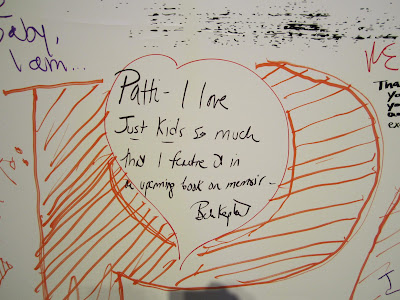 Baby,
I am...
WE
Patti - I love
Just Kids so much
that I feature it in
an upcoming book on memoir -
Beth Kephart